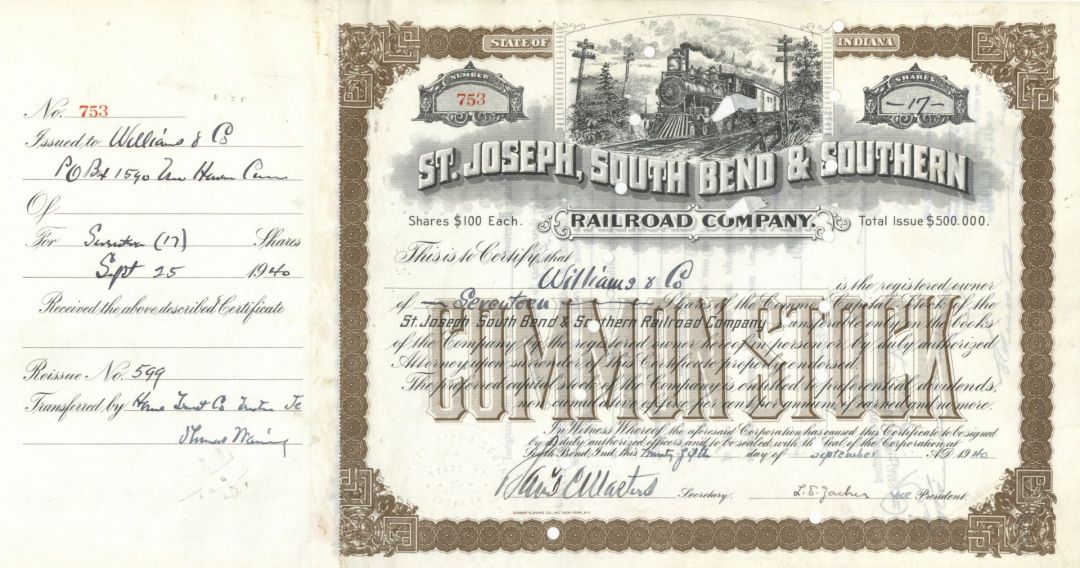 No. 753
Issued to Williams & Co
P O Box 1590 New Haven Conn
Of
For Seventeen (17) Shares
Sept 25 1940
Received the above described Certificate
Reissue No. 599
Transferred by Home Trust Co Trustee
STATE OF INDIANA
NUMBER
753
SHARES
-17-
ST. JOSEPH, SOUTH BEND & SOUTHERN
RAILROAD COMPANY
Shares $100 Each.
Total Issue $500.000.
This is to Certify, that
Williams & Co is the registered owner
of Seventeen Shares of the Common Capital Stock of the
St. Joseph South Bend & Southern Railroad Company transferable only on the books
of the Company by the registered owner hereof in person or by duly authorized
Attorney upon surrender of this Certificate properly endorsed.
The preferred capital stock of the Company is entitled to preferential dividends,
non cumulative of five per cent per annum, if earned and no more.
COMMON STOCK
In Witness Whereof, the aforesaid Corporation has caused this Certificate to be signed
by its duly authorized officers and to be sealed with the Seal of the Corporation at
South Bend, Ind. this Twenty fifth day of September A.D. 1940
Secretary.
vice President